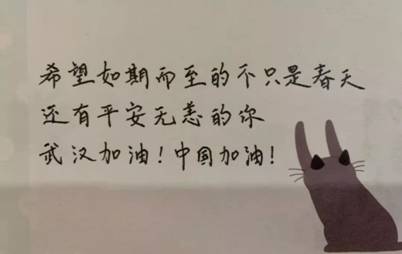 希望如期而至的不只是春天
还有平安无恙的你
武汉加油！中国加油！